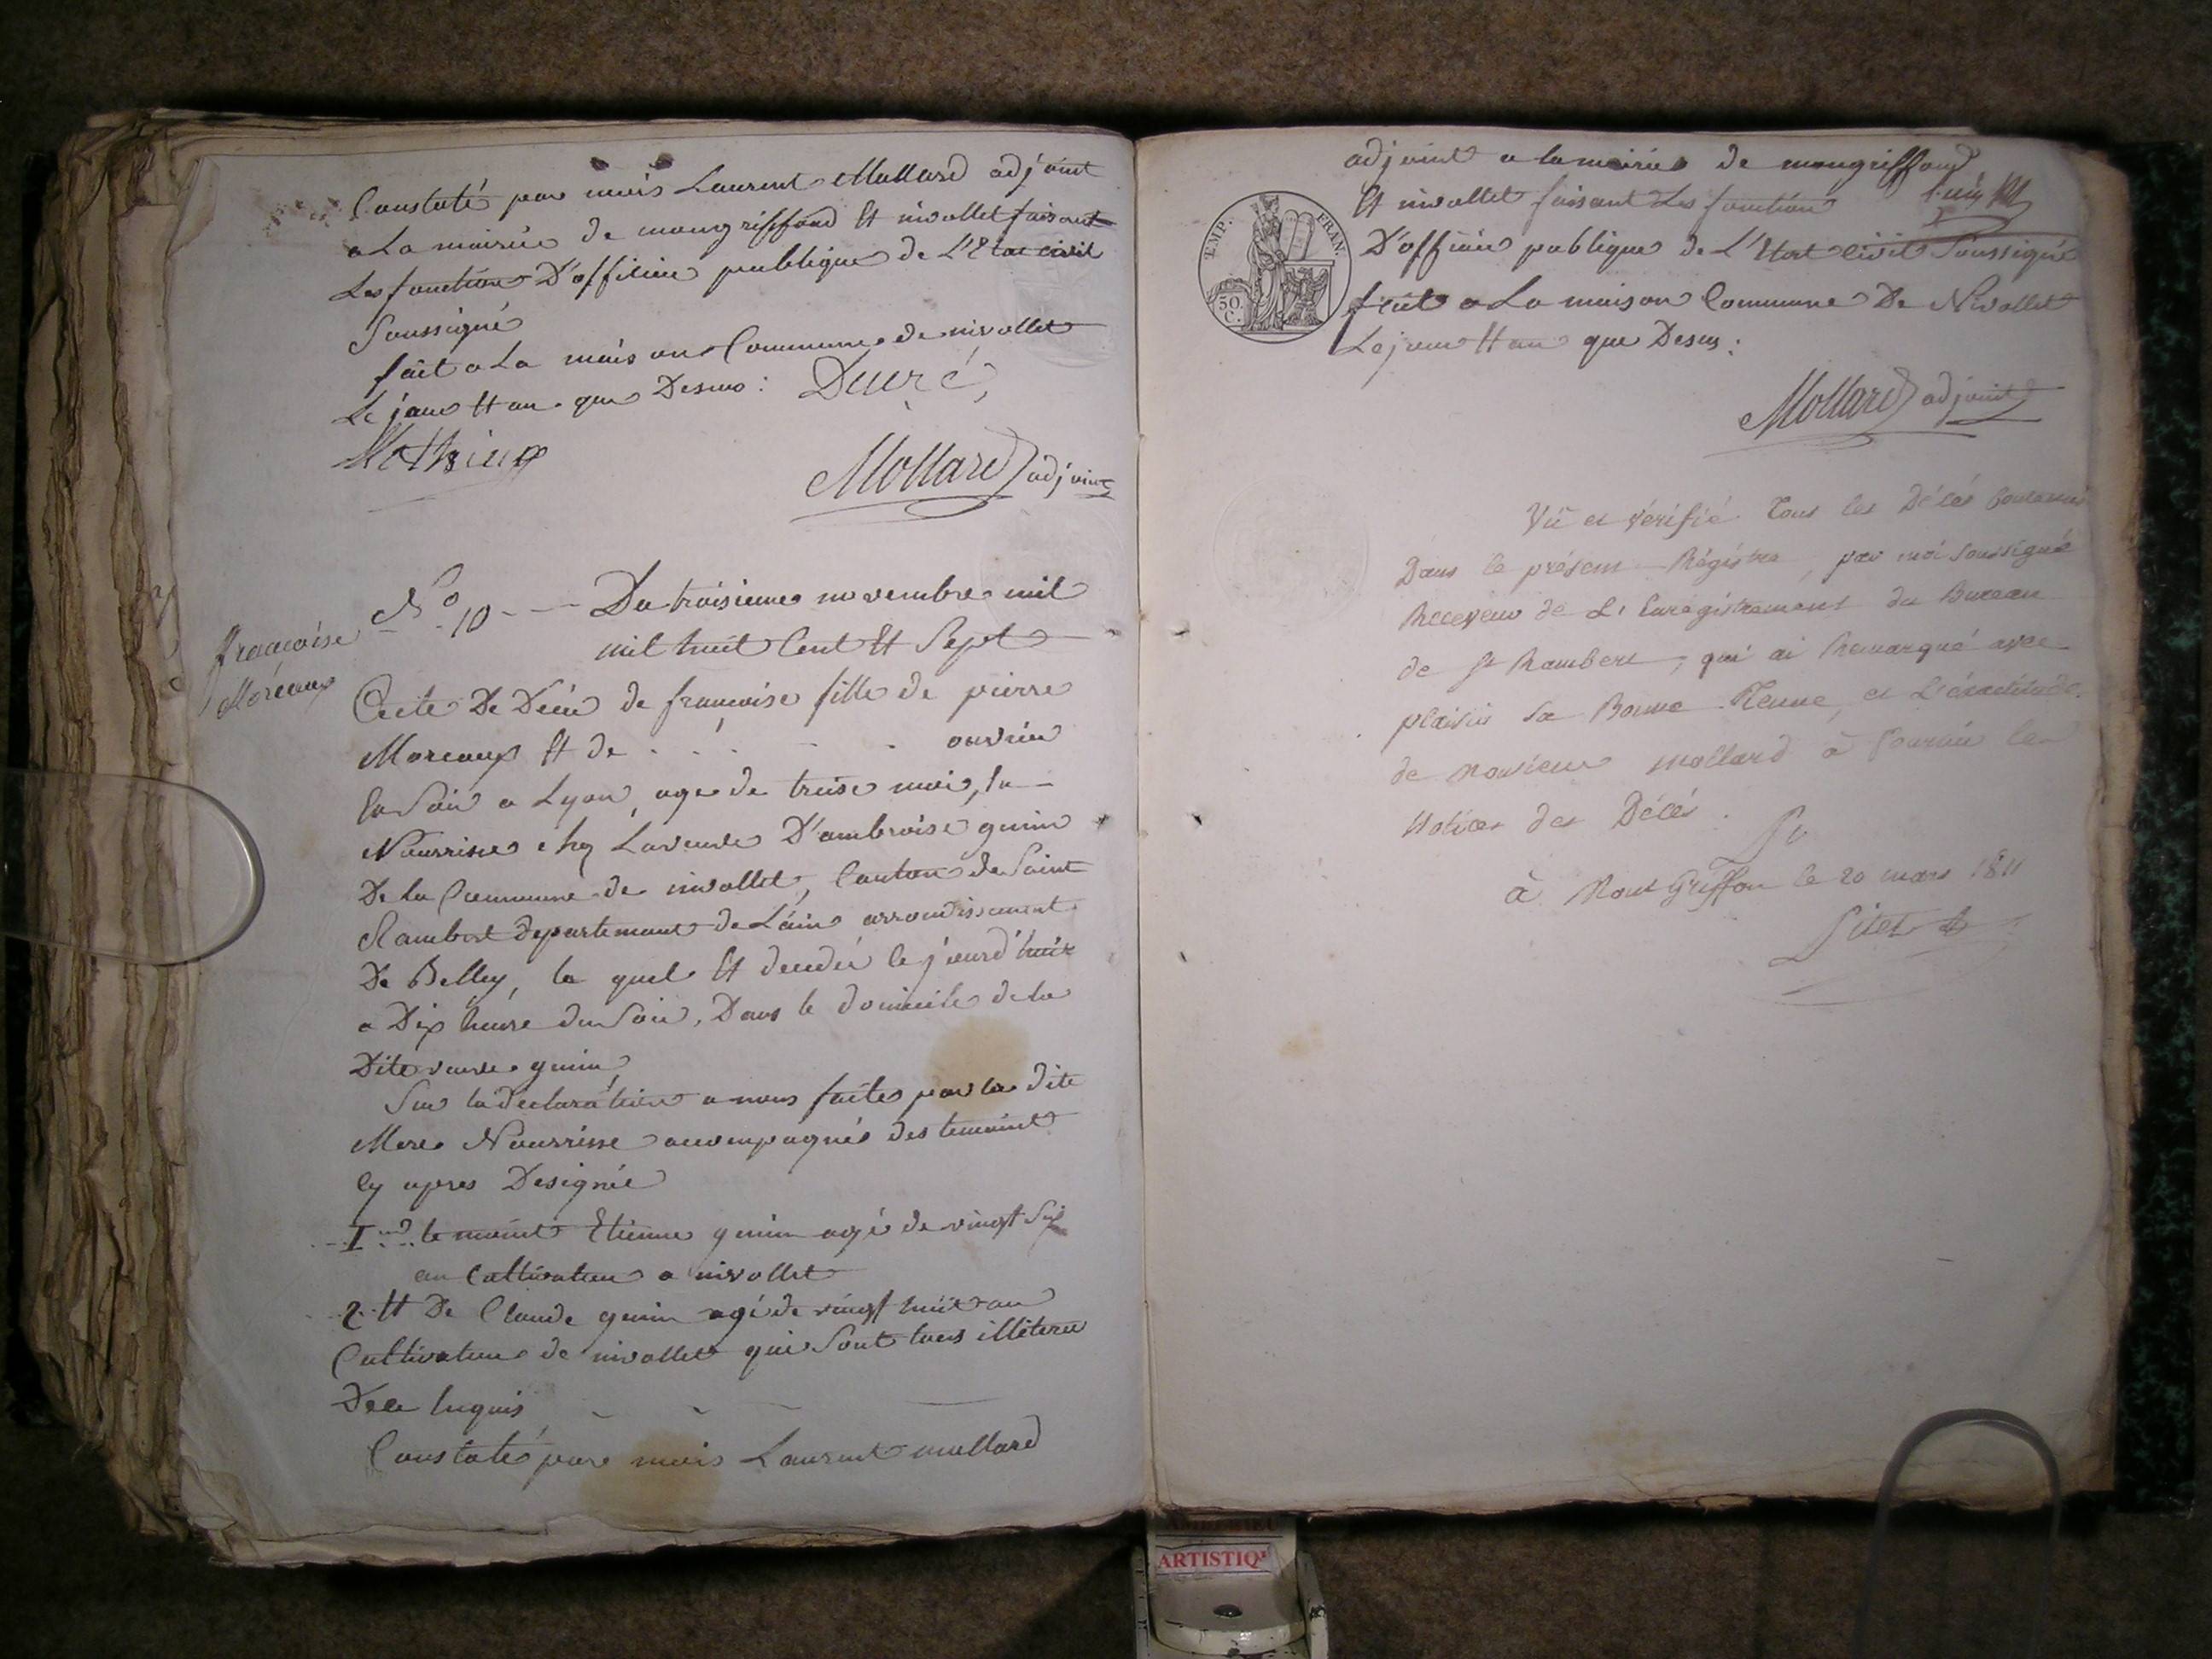 Constaté par mois Laurent Mollard adjoint
a La mairie de mongriffond Et nivollet faisant
Les fonction D'officier publique de L'Etac civil
Soussigné
fait a La maison Commune de nivollet
Le jour Et an que Desus :
Mollard adjoint
françoise
Moreaux
No 10 - - - Du troisieme novembre mil
mil huit Cent Et Sept
Acte De Décé de françoise fille de pierre
Moreaux Et de . . . - . ouvrier
En Soie a Lyon, age de treise mois, En
Nourrise chez La veuve D'ambroise gunin
De la Commune de nivollet, Canton de Saint
Rambert departemant de L'ain arrondissement
De Belley, la quel Et decedée le jourd'huix
a Dix heure du Soir, Dans le domicile de la
Dite veuve gunin
Sur la declaration a nous faite par la dite
Mere Nourrisse accompagnés des temoint
Cy apres Designée
1 temoint Etienne gunin agé de vingt Six
an Cultivateur a nivollet
2 Et De Claude gunin agé de vingt huit an
Cultivateur de nivollet qui Sont tous illiteré
De ce Enquis
Constaté par mois Laurent mollard
adjoint a la mairie de mongriffond
Et nivollet faisant Les fonction
D'officier publique de L'Etat civil Soussigné
fait a La maison Commune De Nivollet
Le jour Et an que Desus :
Mollard adjoint
TEMP. FRAN.
50 C.
Vu et vérifié Tous les Décés Contenus
Dans le présent Régistre, par moi soussigné
Receveur de L'Enregistrement du Bureau
de St Rambert, qui ai Remarqué avec
plaisir la Bonne Tenue, et L'éxactitude
de Monsieur Mollard à fournir les
Notices des Décés.
à Mont Griffon le 20 mars 1811
ARTISTIQ